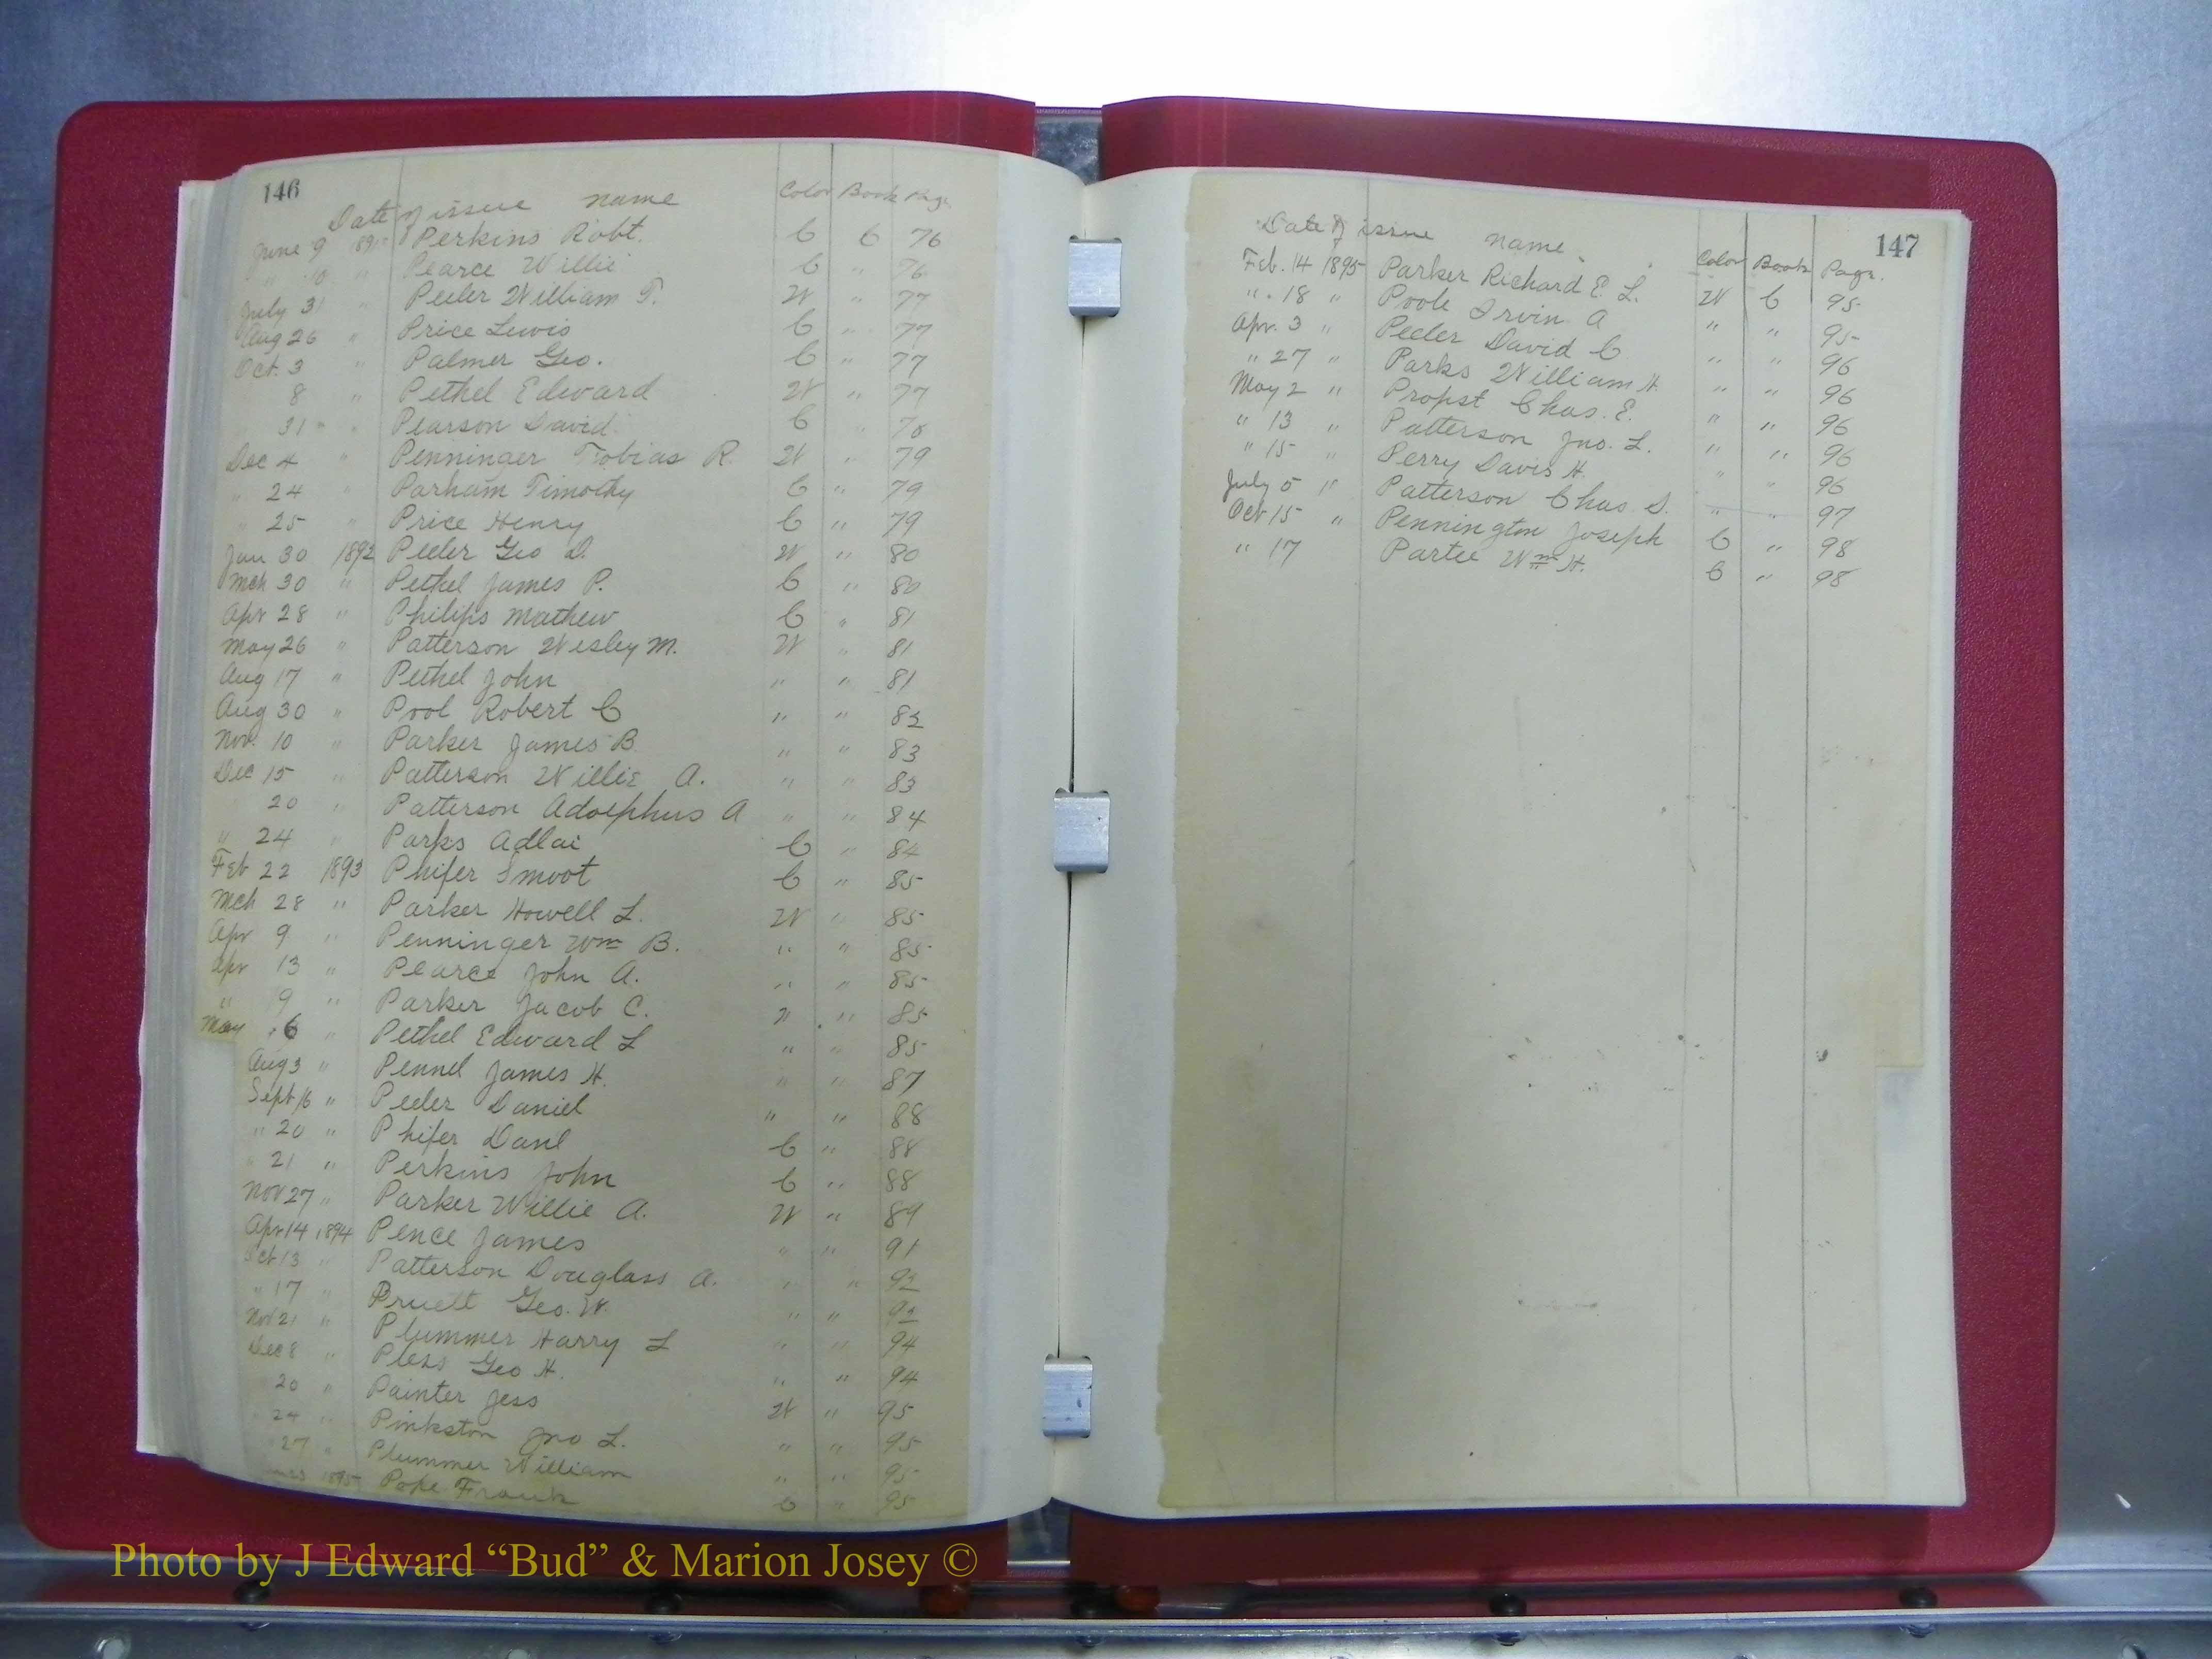 146
Date of issue name Color Book Page
June 9 Perkins Robt. C C 76
" 10 " Pearce Willie C " 76
July 31 " Peeler William T. W " 77
Aug 26 " Price Lewis C " 77
Oct. 3 " Palmer Geo. C " 77
8 " Pethel Edward W " 77
31 " Pearson David C " 78
Dec 4 " Penninger Tobias R. W " 79
" 24 " Parham Timothy C " 79
" 25 " Price Henry C " 79
Jan 30 1892 Peeler Geo D. W " 80
Mch 30 " Pethel James P. C " 80
Apr 28 " Philips Mathew C " 81
May 26 " Patterson Wesley M. W " 81
Aug 17 " Pethel John " " 81
Aug 30 " Pool Robert C " " 82
Nov. 10 " Parker James B " " 83
Dec 15 " Patterson Willie A. " " 83
20 " Patterson Adolphus A " " 84
" 24 " Parks Adlai C " 84
Feb 22 1893 Phifer Smoot C " 85
Mch 28 " Parker Howell L. W " 85
Apr 9 " Penninger Wm B. " " 85
Apr 13 " Pearce John A. " " 85
" 9 " Parker Jacob C. " " 85
May 6 " Pethel Edward L " " 85
Aug 3 " Pennel James H. " " 87
Sept 16 " Peeler Daniel " " 88
" 20 " Phifer Danl C " 88
" 21 " Perkins John C " 88
Nov 27 " Parker Willie A. W " 89
Apr 14 1894 Pence James " " 91
Oct 13 " Patterson Douglass A. " " 92
" 17 " Pruett Geo. W. " " 92
Nov 21 " Plummer Harry L " " 94
Dec 8 " Pless Geo H. " " 94
20 " Painter Jess W " 95
" 24 " Pinkston Jno L. " " 95
27 " Plummer William " " 95
1895 Pope Frank C " 95
147
Date of issue name Color Book Page.
Feb. 14 1895 Parker Richard E. L. W C 95
" 18 " Poole Irvin A " " 95
Apr. 3 " Peeler David C " " 96
" 27 " Parks William H. " " 96
May 2 " Propst Chas. E. " " 96
" 13 " Patterson Jno. L. " " 96
" 15 " Perry Davis H. " " 96
July 5 " Patterson Chas D. " " 97
Oct 15 " Pennington Joseph C " 98
" 17 Partee Wm H. C " 98
Photo by J Edward “Bud” & Marion Josey ©